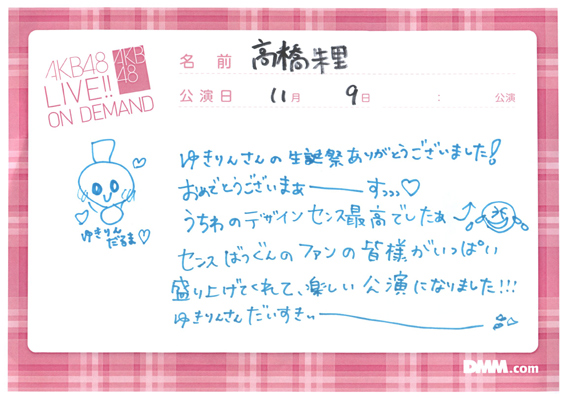 AKB48
LIVE!!
ON DEMAND
AKB
48
名前 高橋朱里
公演日 11月 9日 : 公演
ゆきりんさんの生誕祭ありがとうございました!
おめでとうございまぁーーすっっっ♡
うちわのデザインセンス最高でしたぁ
センスばつぐんのファンの皆様がいっぱい
盛り上げてくれて、楽しい公演になりました!!!
ゆきりんさんだいすきぃーーー
ゆきりん
だるま♡
DMM.com